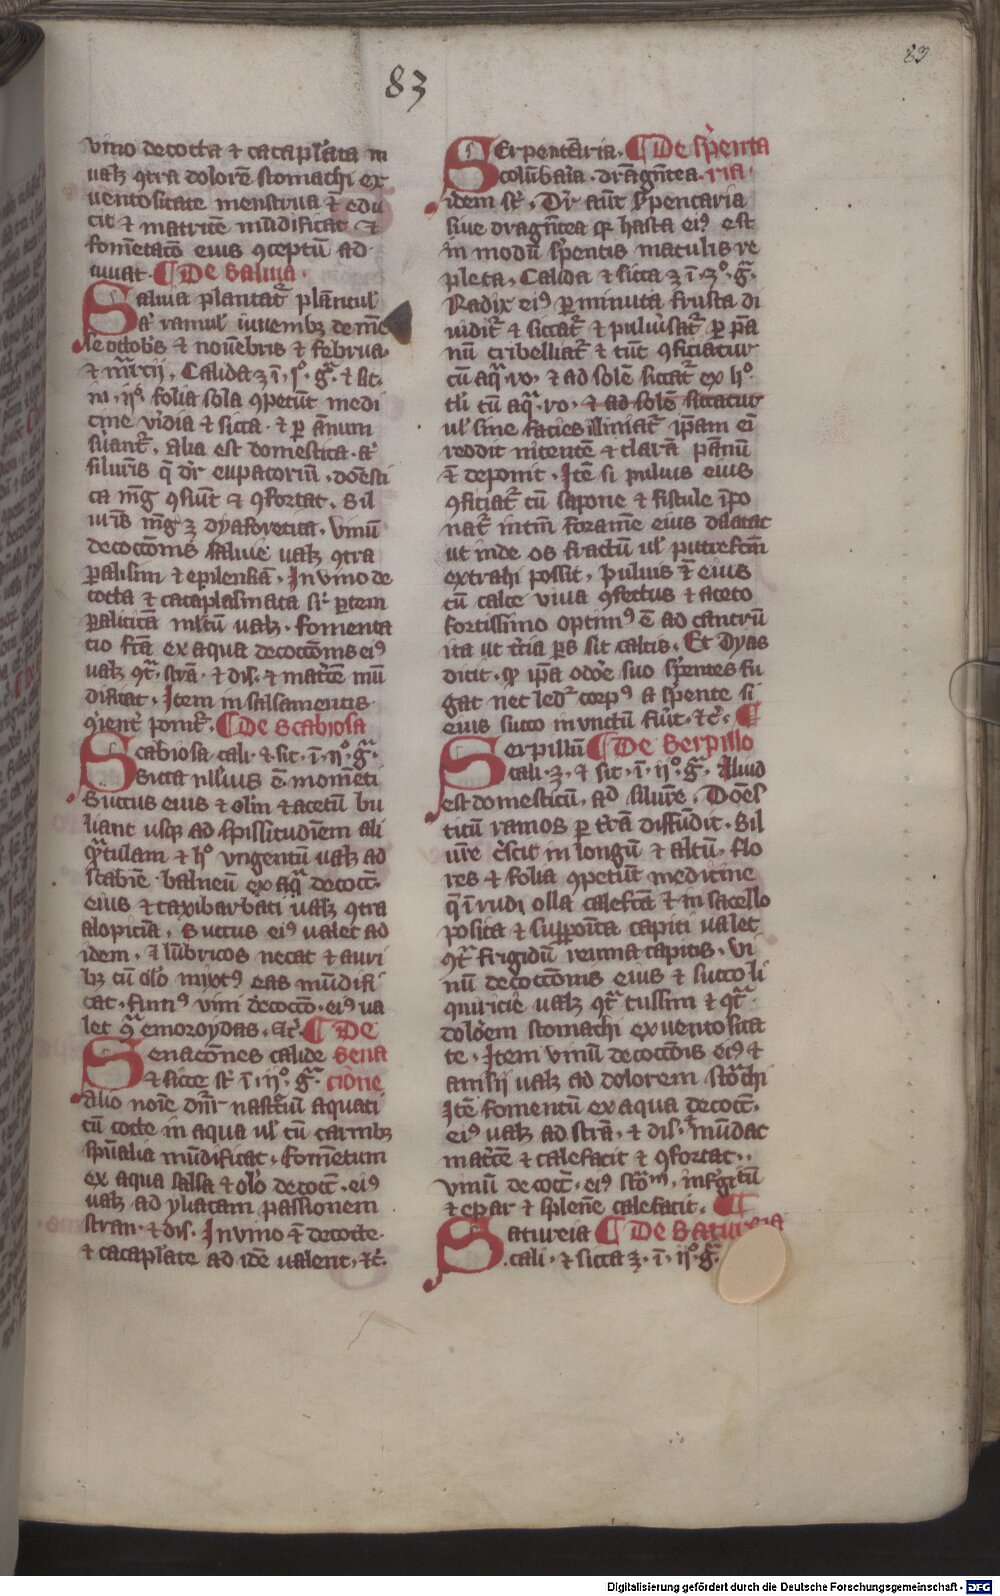 83
83
vino decocta ⁊ cacapl'ata in
ualꝫ ꝯtra dolorē stomachi ex
uentositate menstrua ⁊ edu
cit ⁊ matricē mūdificat ⁊
fomētacō eius ꝯceptū ad
iuuat. ¶ De Saluia.
Saluia plantat᷑ plantul'
ramul' iuuenibꝫ de mē
se octob's ⁊ nouēbris ⁊ februa.
⁊ m̄rcij. Calida ꝫ ī. p̊. gͣ. ⁊ sic.
in. ijº. folia sola ꝯpetūt medi
cine v'idia ⁊ sicca. ⁊ ꝑ annum
s'uant᷑. Alia est domestica. a'
siluest'is q̄ dr̄ eupatoriū. dōesti
ca mg̊ ꝯsum̄t ⁊ ꝯfortat. Sil
uest's mg̊ ꝫ dyaforetica. Vinū
decoctōnis saluie ualꝫ ꝯtra
ꝑalisim ⁊ epilensiā. In vino de
cocta ⁊ cacaplasmata sr̄ ꝑtem
ꝑaliticā mltū ualꝫ. fomenta
cio fcā ex aqua decoctōnis eiꝰ
ualꝫ ꝯt͛. strā. ⁊ dis. ⁊ mat'cē mū
dificat. Item in salsamentis
ꝯ'ient' ponit᷑. ¶ De Scabiosa
Scabiosa. cali. ⁊ sic. ī. ijº. gͣ.
Sicca nlliꝰ ē momēti
Succus eius ⁊ olm ⁊ acetū bu
liant usqꝫ ad spissitudinem ali
qͣtulam ⁊ hº vngentū ualꝫ ad
scabiē. balneū ex aqͣ decoct̄.
eius ⁊ taxibarbati ualꝫ ꝯtra
alopiciā. Succus eiꝰ ualet ad
idem. ⁊ lūbricos necat ⁊ auri
bꝫ cū olo mixtꝰ eas mūdifi
cat. fumꝰ vini decocco. eiꝰ ua
let ꝯͣ emoroydas. ⁊c̄. ¶ De
Senacōnes calide Sena
⁊ sicce st᷑ ī. ijº. gͣ. cione
Alio noīe dnr̄ nastruū aquati
cū cocte in aqua ul' cū carnibꝫ
spūalia mūdificat. fomētum
ex aqua salsa ⁊ olo decoct̄. eiꝰ
ualꝫ ad yliacam passionem
stran. ⁊ dis. In vino ē decocte.
⁊ cacaplate ad idē ualent. ⁊c̄.
SErpentaria. ¶ De s'penta
colūbaria. dragūtea. ria.
idem st᷑. Dr̄ aūt s'pentaria
siue dragūtea qꝛ hasta eiꝰ est
in modū s'pentis maculis re
pleta. Calida ⁊ sicca ꝫ ī. 3º. gͣ.
Radix eiꝰ ꝑ minuta frusta di
uidit᷑ ⁊ siccat᷑ ⁊ puluisat᷑ ꝑ pā
num cribelliat᷑ ⁊ tūc ꝯficiatur
cū aqͣ. ro. ⁊ ad solē siccat᷑ ex hº.
tli cū aqͣ. ro. ⁊ ad solē siccatur
ul' sine facies illiniat᷑ ipam eī
reddit nitentē ⁊ clarā pānū
ē deponit. Itē si puluis eius
ꝯficiat᷑ cū sapone ⁊ fistule īpo
nat᷑ intm̄ foramē eius dilatat
ut inde os fractū ul' putrefctm̄
extrahi possit. Puluis ē eius
cū calce viua ꝯfectus ⁊ aceto
fortissimo optimꝰ ē ad cancrū
ita ut t'cia ꝑs sit calcis. Et Dyas
dicit. ꝙ ipa odōe suo s'pentes fu
gat nec ledr̄ corpꝰ a s'pente si
eius succo inunctū fu'it. ⁊c̄. ¶
Serpillū ¶ De Serpillo
cali. ꝫ. ⁊ sic. ī. ijº. gͣ. Aliud
est domesticū. ad siluēe. Domes
ticū ramos ꝑ trā diffūdit. Sil
uēe c'scit in longū ⁊ altū. flo
res ⁊ folia ꝯpetūt medicine
q̄ ī rudi olla calefcā ⁊ in sacello
posita ⁊ supponita capiti ualet
ꝯt͛ frigidū reuma capitis. Vi
nū decoctōnis eius ⁊ succo li
quiricie ualꝫ ꝯt͛ tussim ⁊ ꝯt͛.
dolōem stomachi ex uentosita
te. Item vinū decoctōnis eiꝰ ⁊
anisij ualꝫ ad dolorem stōchi
Itē fomentū ex aqua decoct̄.
eiꝰ ualꝫ ad strā. ⁊ dis. mūdat
mat'cē ⁊ calefacit ⁊ ꝯfortat..
Vinū decoct̄. eiꝰ stōm. infrigitū
⁊ epar ⁊ splenē calefacit. ¶
Satureia ¶ De Satureia
cali. ⁊ sicca ꝫ. ī. ijº. gͣ.
Digitalisierung gefördert durch die Deutsche Forschungsgemeinschaft - DFG